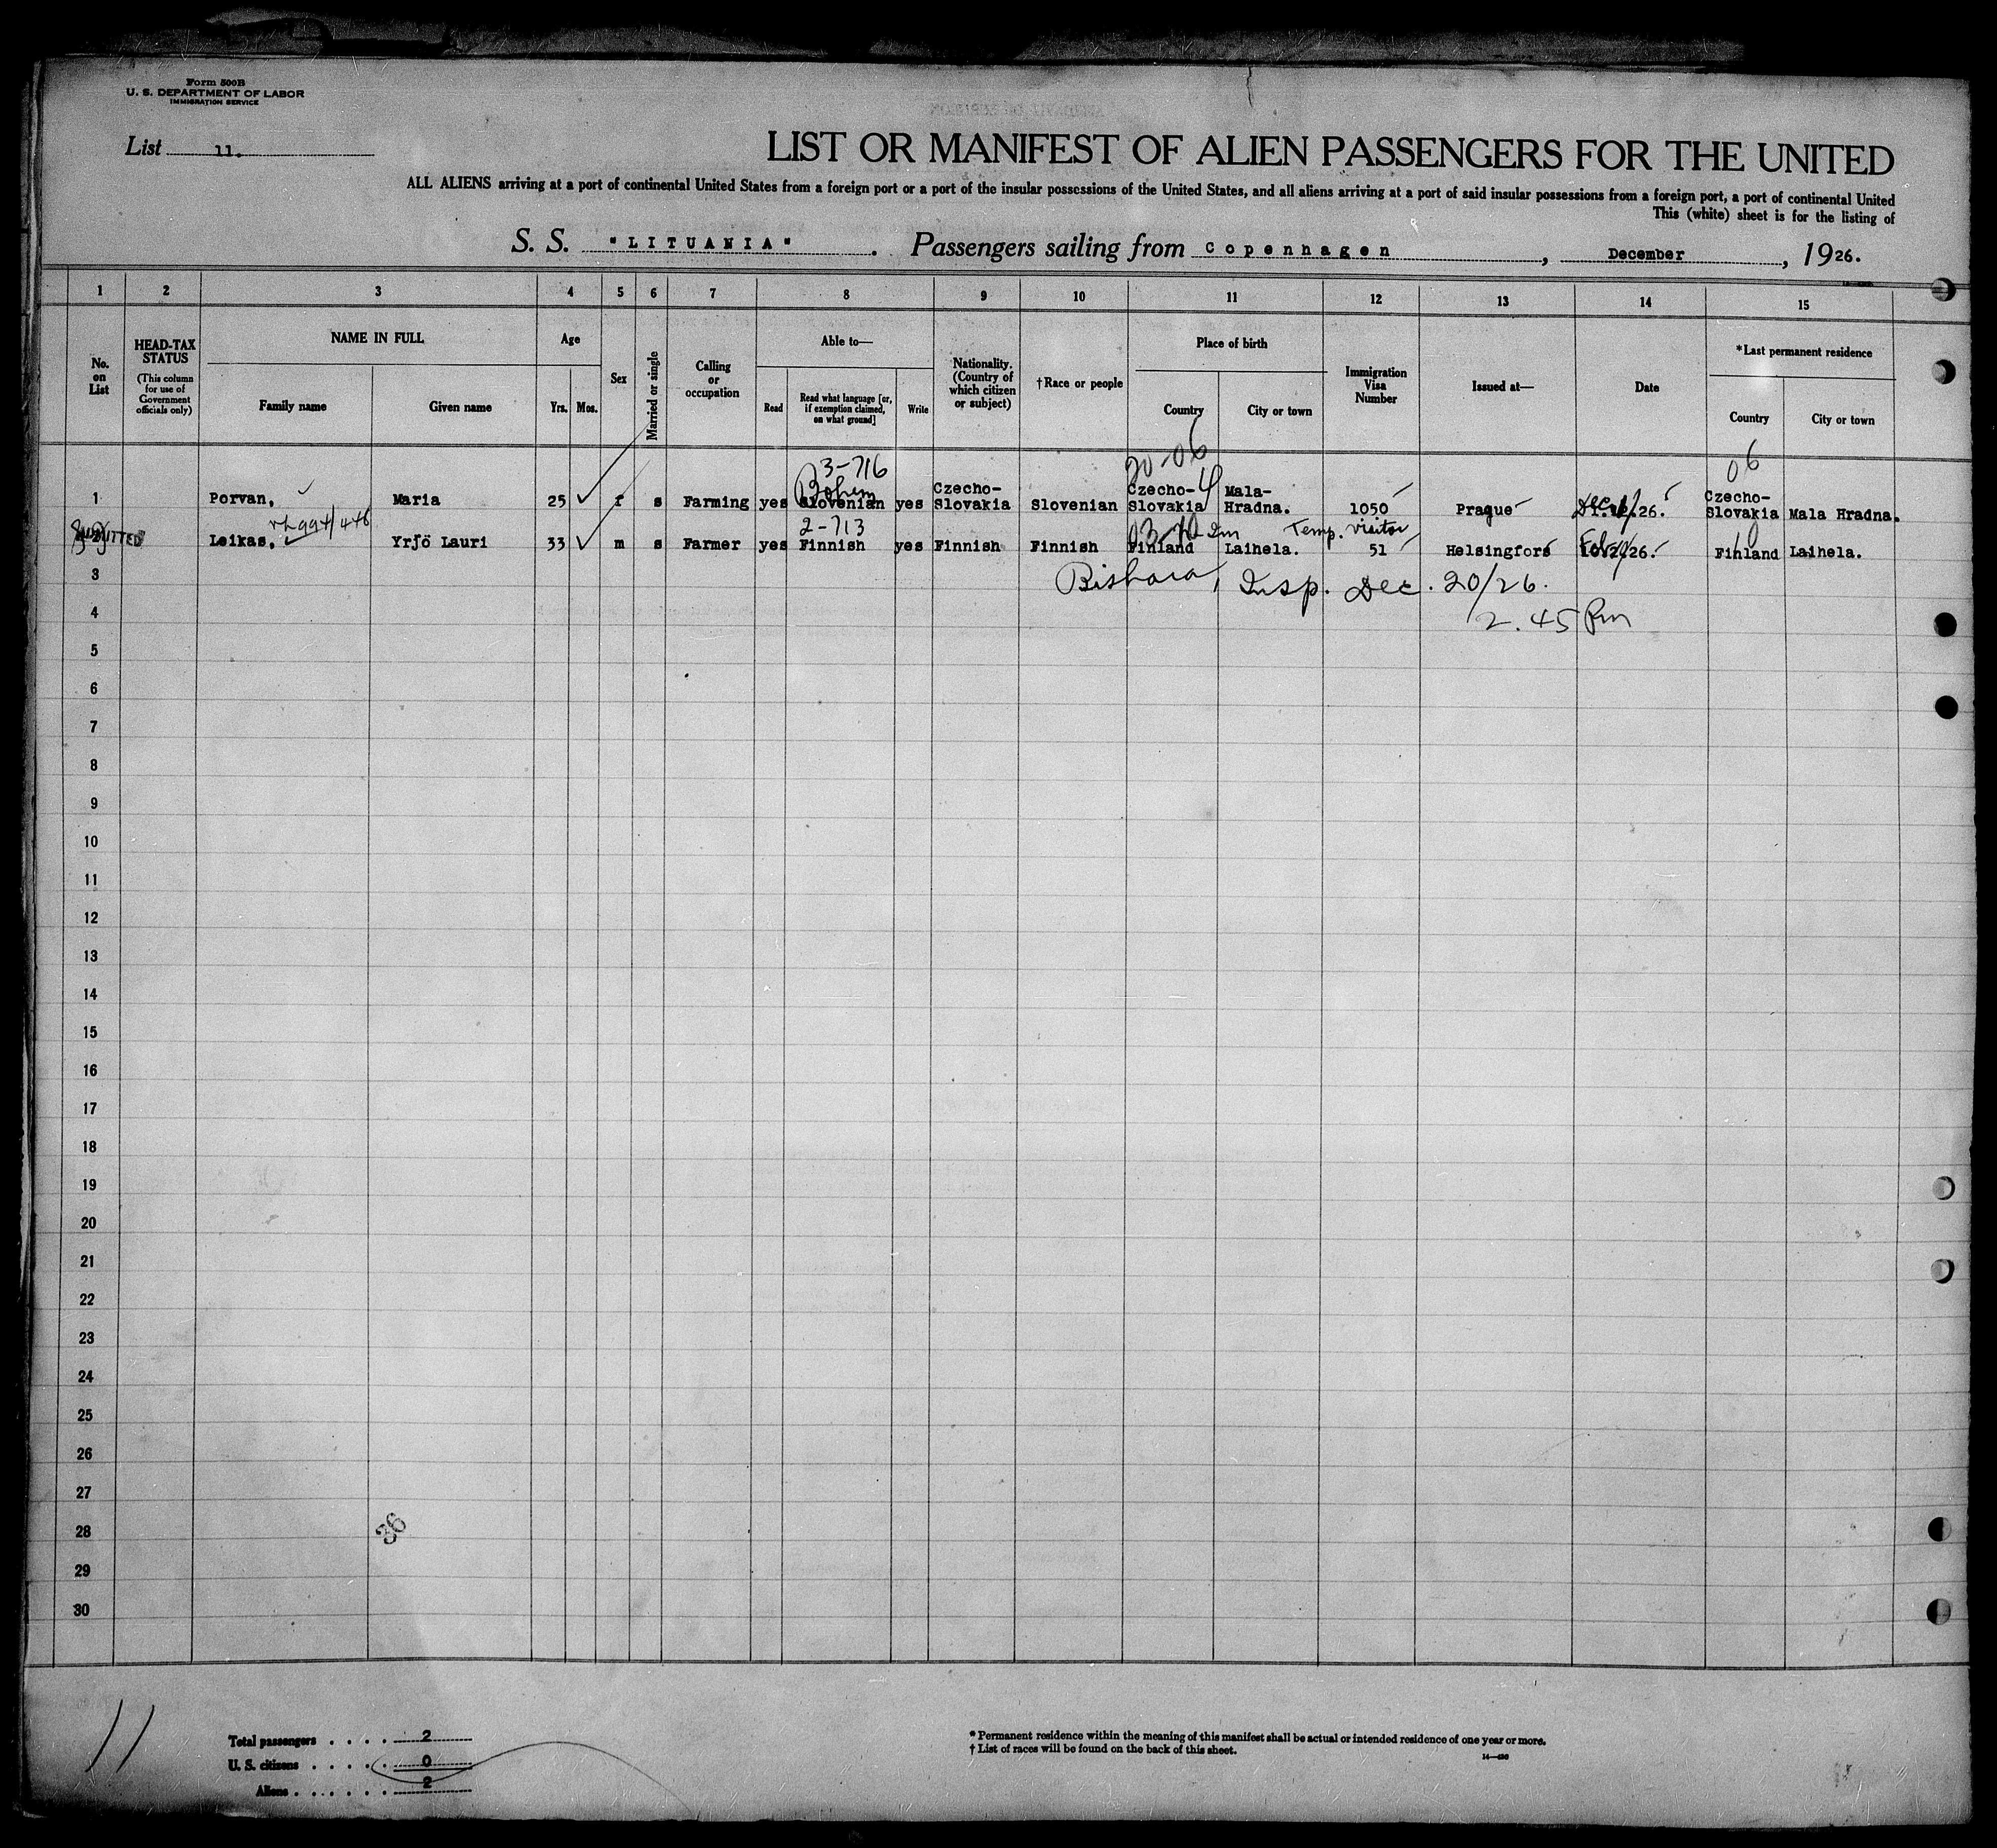 Form 500B
U. S. DEPARTMENT OF LABOR
IMMIGRATION SERVICE
List 11.
LIST OR MANIFEST OF ALIEN PASSENGERS FOR THE UNITED
ALL ALIENS arriving at a port of continental United States from a foreign port or a port of the insular possessions of the United States, and all aliens arriving at a port of said insular possessions from a foreign port, a port of continental United
This (white) sheet is for the listing of
S. S. "LITUANIA". Passengers sailing from Copenhagen, December, 1926.
1 2 3 4 5 6 7 8 9 10 11 12 13 14 15
No. on List
HEAD-TAX STATUS
(This column for use of Government officials only)
NAME IN FULL
Family name
Given name
Age
Yrs. Mos.
Sex
Married or single
Calling or occupation
Able to—
Read
Read what language [or, if exemption claimed, on what ground]
Write
Nationality. (Country of which citizen or subject)
†Race or people
Place of birth
Country
City or town
Immigration Visa Number
Issued at—
Date
*Last permanent residence
Country
City or town
3-716 20-06 06
1 Porvan, Maria 25 f s Farming yes Slovenian Bohem yes Czecho-Slovakia Slovenian Czecho-Slovakia Mala-Hradna. 1050 Prague Dec. 26. Czecho-Slovakia Mala Hradna.
2-713 Temp. Visitor
ADMITTED Leikas, Yrjö Lauri 33 m s Farmer yes Finnish yes Finnish Finnish Finland Laihela. 51 Helsingfors 26. Finland Laihela.
3 Bishara, Insp. Dec. 20/26.
4 2.45 Pm
5
6
7
8
9
10
11
12
13
14
15
16
17
18
19
20
21
22
23
24
25
26
27
28 36
29
30
11
Total passengers . . . . 2
U. S. citizens . . . . . 0
Aliens . . . . . . 2
* Permanent residence within the meaning of this manifest shall be actual or intended residence of one year or more.
† List of races will be found on the back of this sheet.